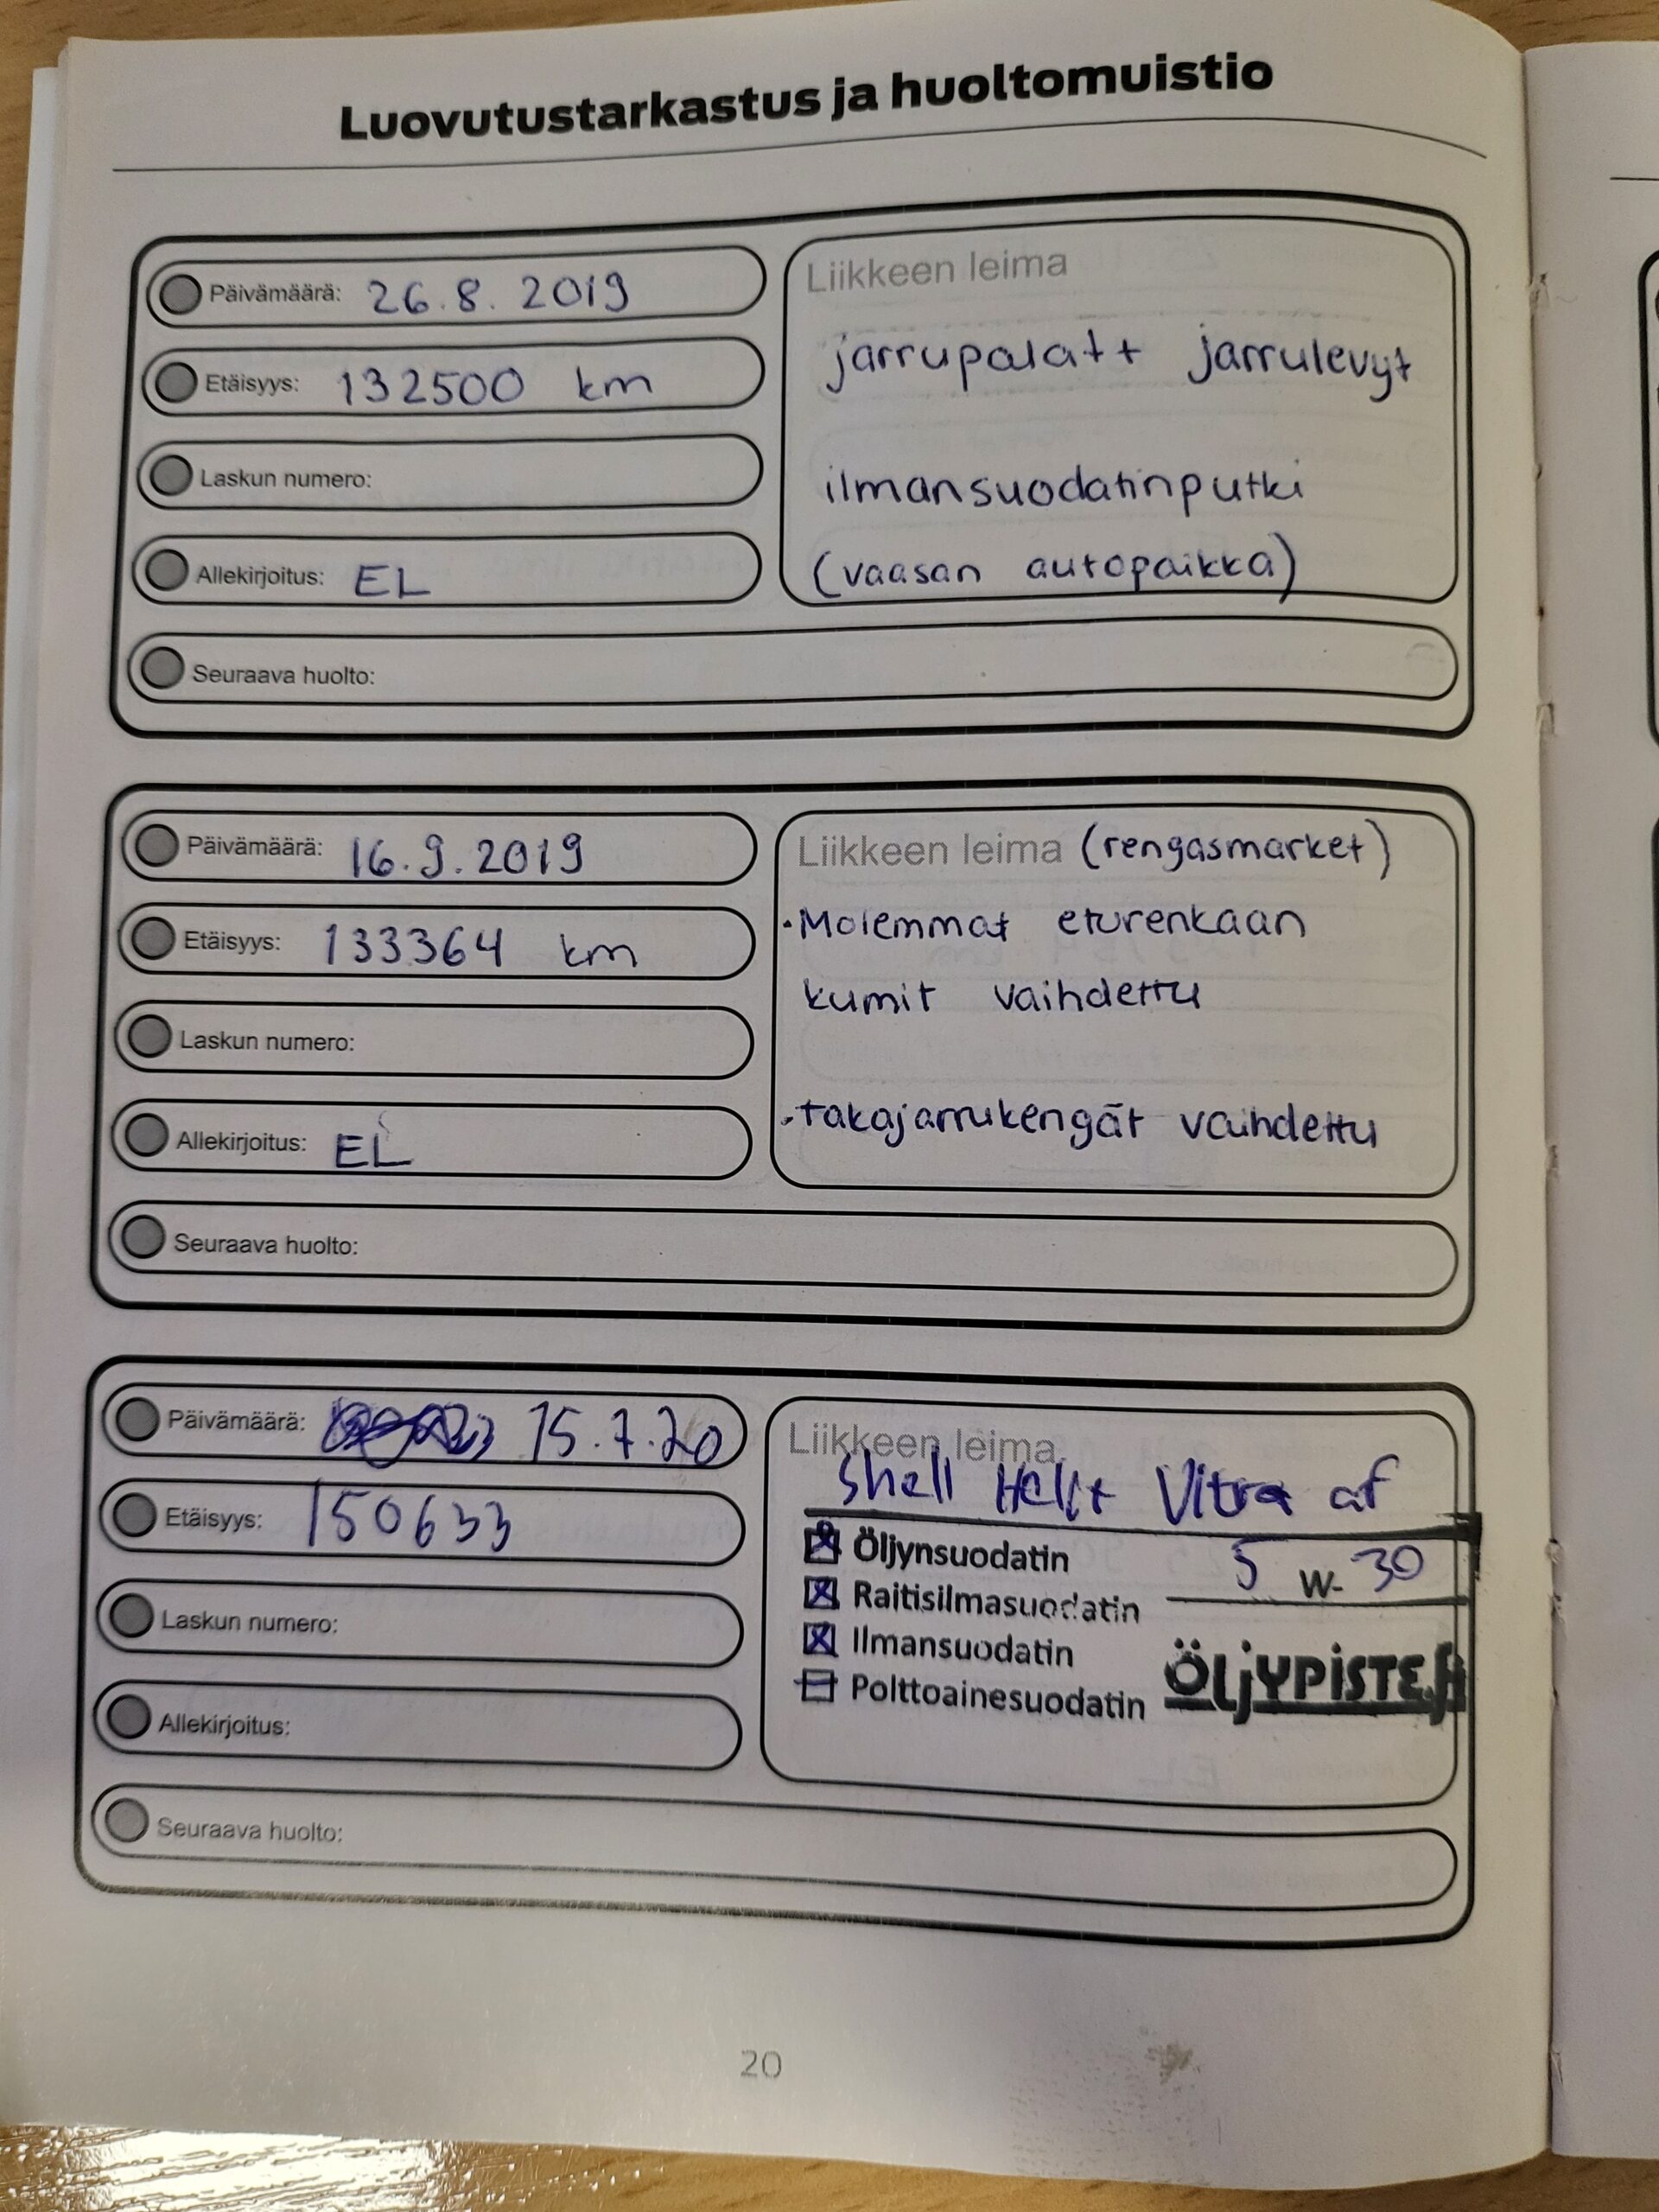 Luovutustarkastus ja huoltomuistio
Päivämäärä: 26.8.2019
Etäisyys: 132500 km
Laskun numero:
Allekirjoitus: EL
Liikkeen leima
jarrupalat+ jarrulevyt
ilmansuodatinputki
(vaasan autopaikka)
Seuraava huolto:
Päivämäärä: 16.9.2019
Etäisyys: 133364 km
Laskun numero:
Allekirjoitus: EL
Liikkeen leima (rengasmarket)
·Molemmat eturenkaan
kumit vaihdettu
·takajarrukengät vaihdettu
Seuraava huolto:
Päivämäärä: 15.7.20
Etäisyys: 150633
Laskun numero:
Allekirjoitus:
Liikkeen leima
Shell Vitra af
Öljynsuodatin 5 W- 30
Raitisilmasuodatin
Ilmansuodatin
Polttoainesuodatin
ÖLJYPISTE.fi
Seuraava huolto:
20